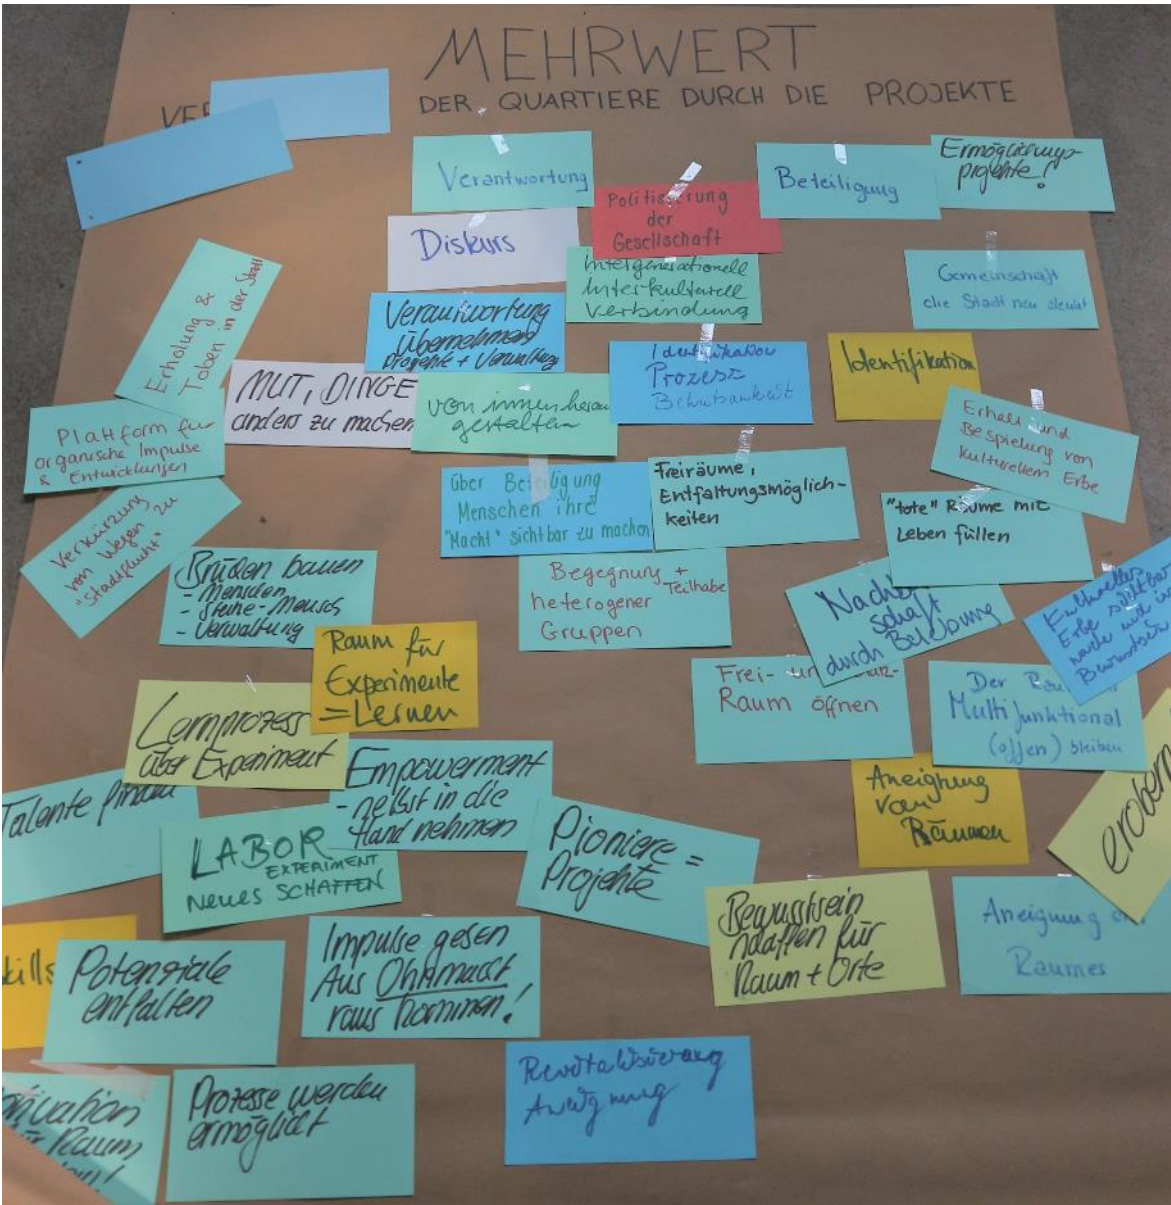 MEHRWERT
DER QUARTIERE DURCH DIE PROJEKTE
Verantwortung
Politisierung
der
Gesellschaft
Beteiligung
Ermöglichungs-
projekte!
Diskurs
Intergenerationelle
Interkulturell
Verbindung
Gemeinschaft
die Stadt neu denkt
Erholung &
Toben in der Stadt
Verantwortung
übernehmen
Projekte + Verwaltung
Identifikation
Prozess
Identifikation
MUT, DINGE
anders zu machen
von innen heraus
gestalten
Erhalt und
Bespielung von
kulturellem Erbe
Plattform für
organische Impulse
& Entwicklungen
über Beteiligung
Menschen ihre
"Macht" sichtbar zu machen
Freiräume,
Entfaltungsmöglich-
keiten
"tote" Räume mit
Leben füllen
Verkürzung
von Wegen zu
"Stadtflucht"
Brücken bauen
- Menschen
- Steine - Mensch
- Verwaltung
Begegnung +
heterogener Teilhabe
Gruppen
schaft
durch Belebung
Kulturelles
Erbe sichtbar
Raum für
Experimente
= Lernen
Frei-
Raum öffnen
Der
Multifunktional
(offen) bleiben
Lernprozess
über Experiment
Empowerment
- selbst in die
Hand nehmen
Aneignung
von
Räumen
erobern
Talente finden
LABOR
EXPERIMENT
NEUES SCHAFFEN
Pioniere =
Projekte
Bewusstsein
schaffen für
Raum + Orte
Aneignung
Raumes
kills
Potenziale
entfalten
Impulse gegen
Aus Ohnmacht
raus kommen!
Revitalisierung
Aneignung
Prozesse werden
ermöglicht
Raum